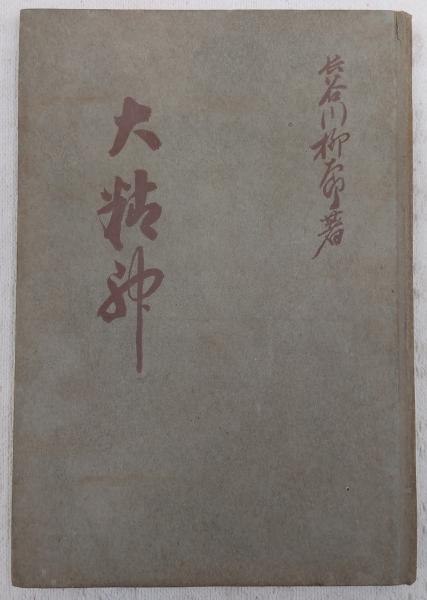 長谷川柳🈳著
大精神